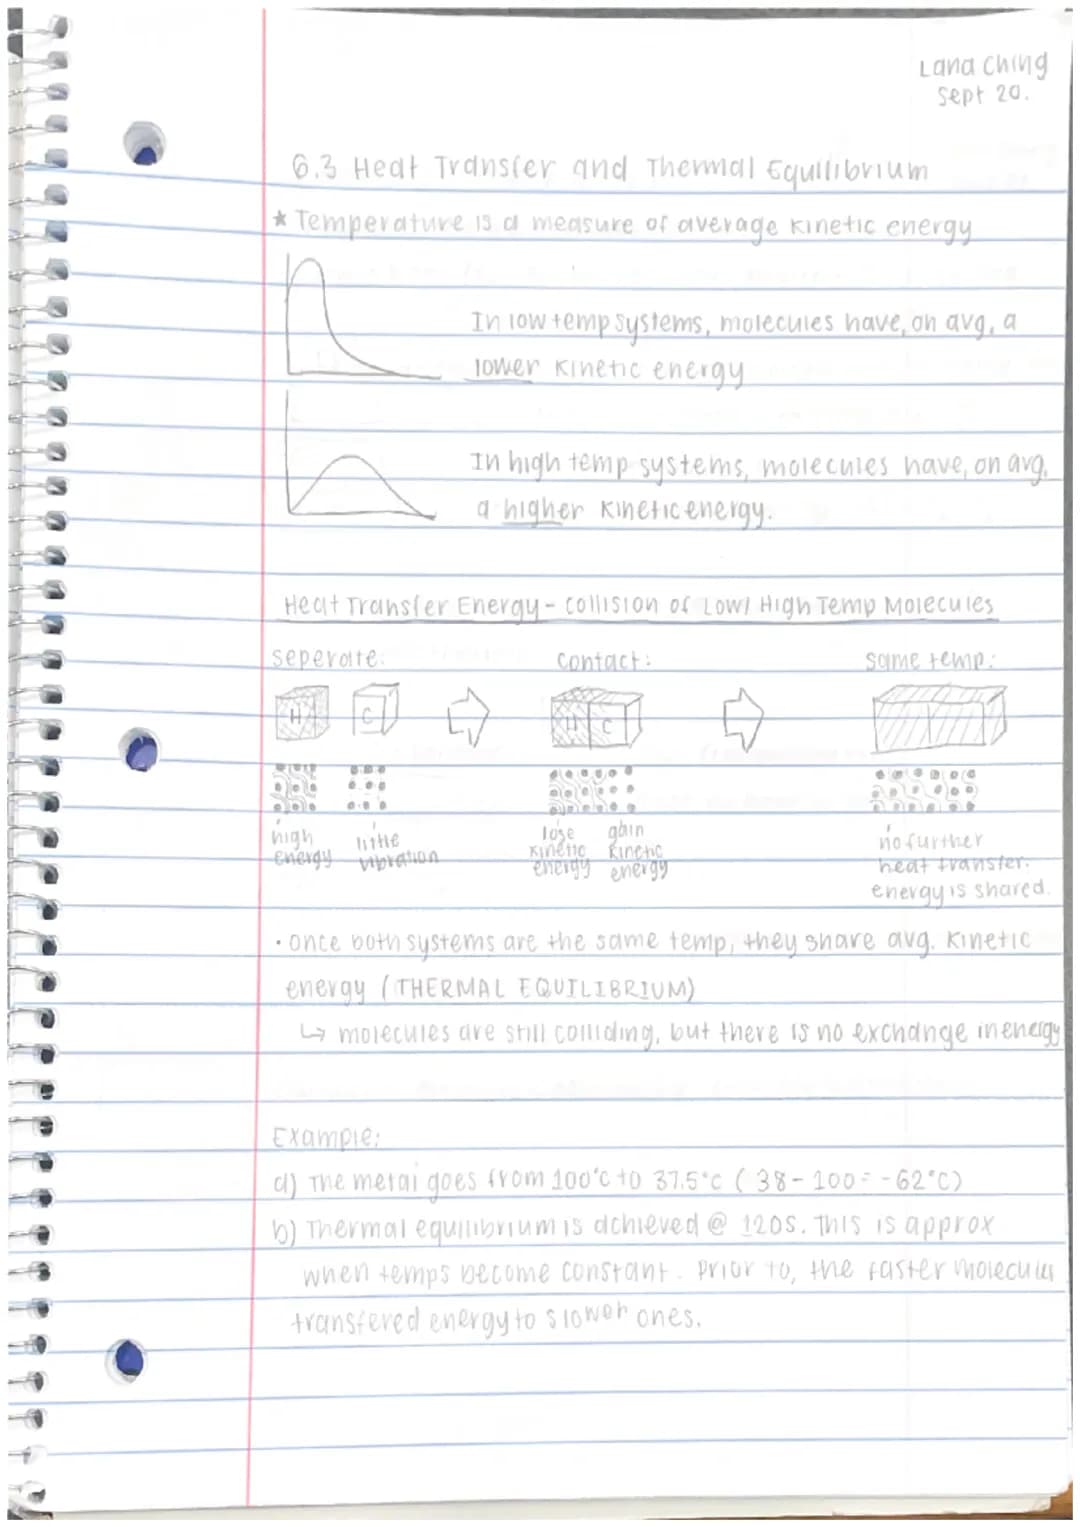 Lana Ching
Sept 20.
6.3 Heat Transfer and Thermal Equilibrium
* Temperature is a measure of average kinetic energy
In low temp systems, molecules have, on avg, a
lower kinetic energy
In high temp systems, molecules have, on avg,
a higher kinetic energy.
Heat Transfer Energy - collision of Low/ High Temp Molecules
seperate:
contact:
same temp:
H C
H C
high energy
little vibration
lose kinetic energy
gain kinetic energy
no further
heat transfer.
energy is shared.
• once both systems are the same temp, they share avg. kinetic
energy (THERMAL EQUILIBRIUM)
↳ molecules are still colliding, but there is no exchange in energy
Example:
a) The metal goes from 100°C to 37.5°C (38-100= -62°C)
b) Thermal equilibrium is achieved @ 120s. This is approx
when temps become constant. Prior to, the faster molecules
transfered energy to slower ones.